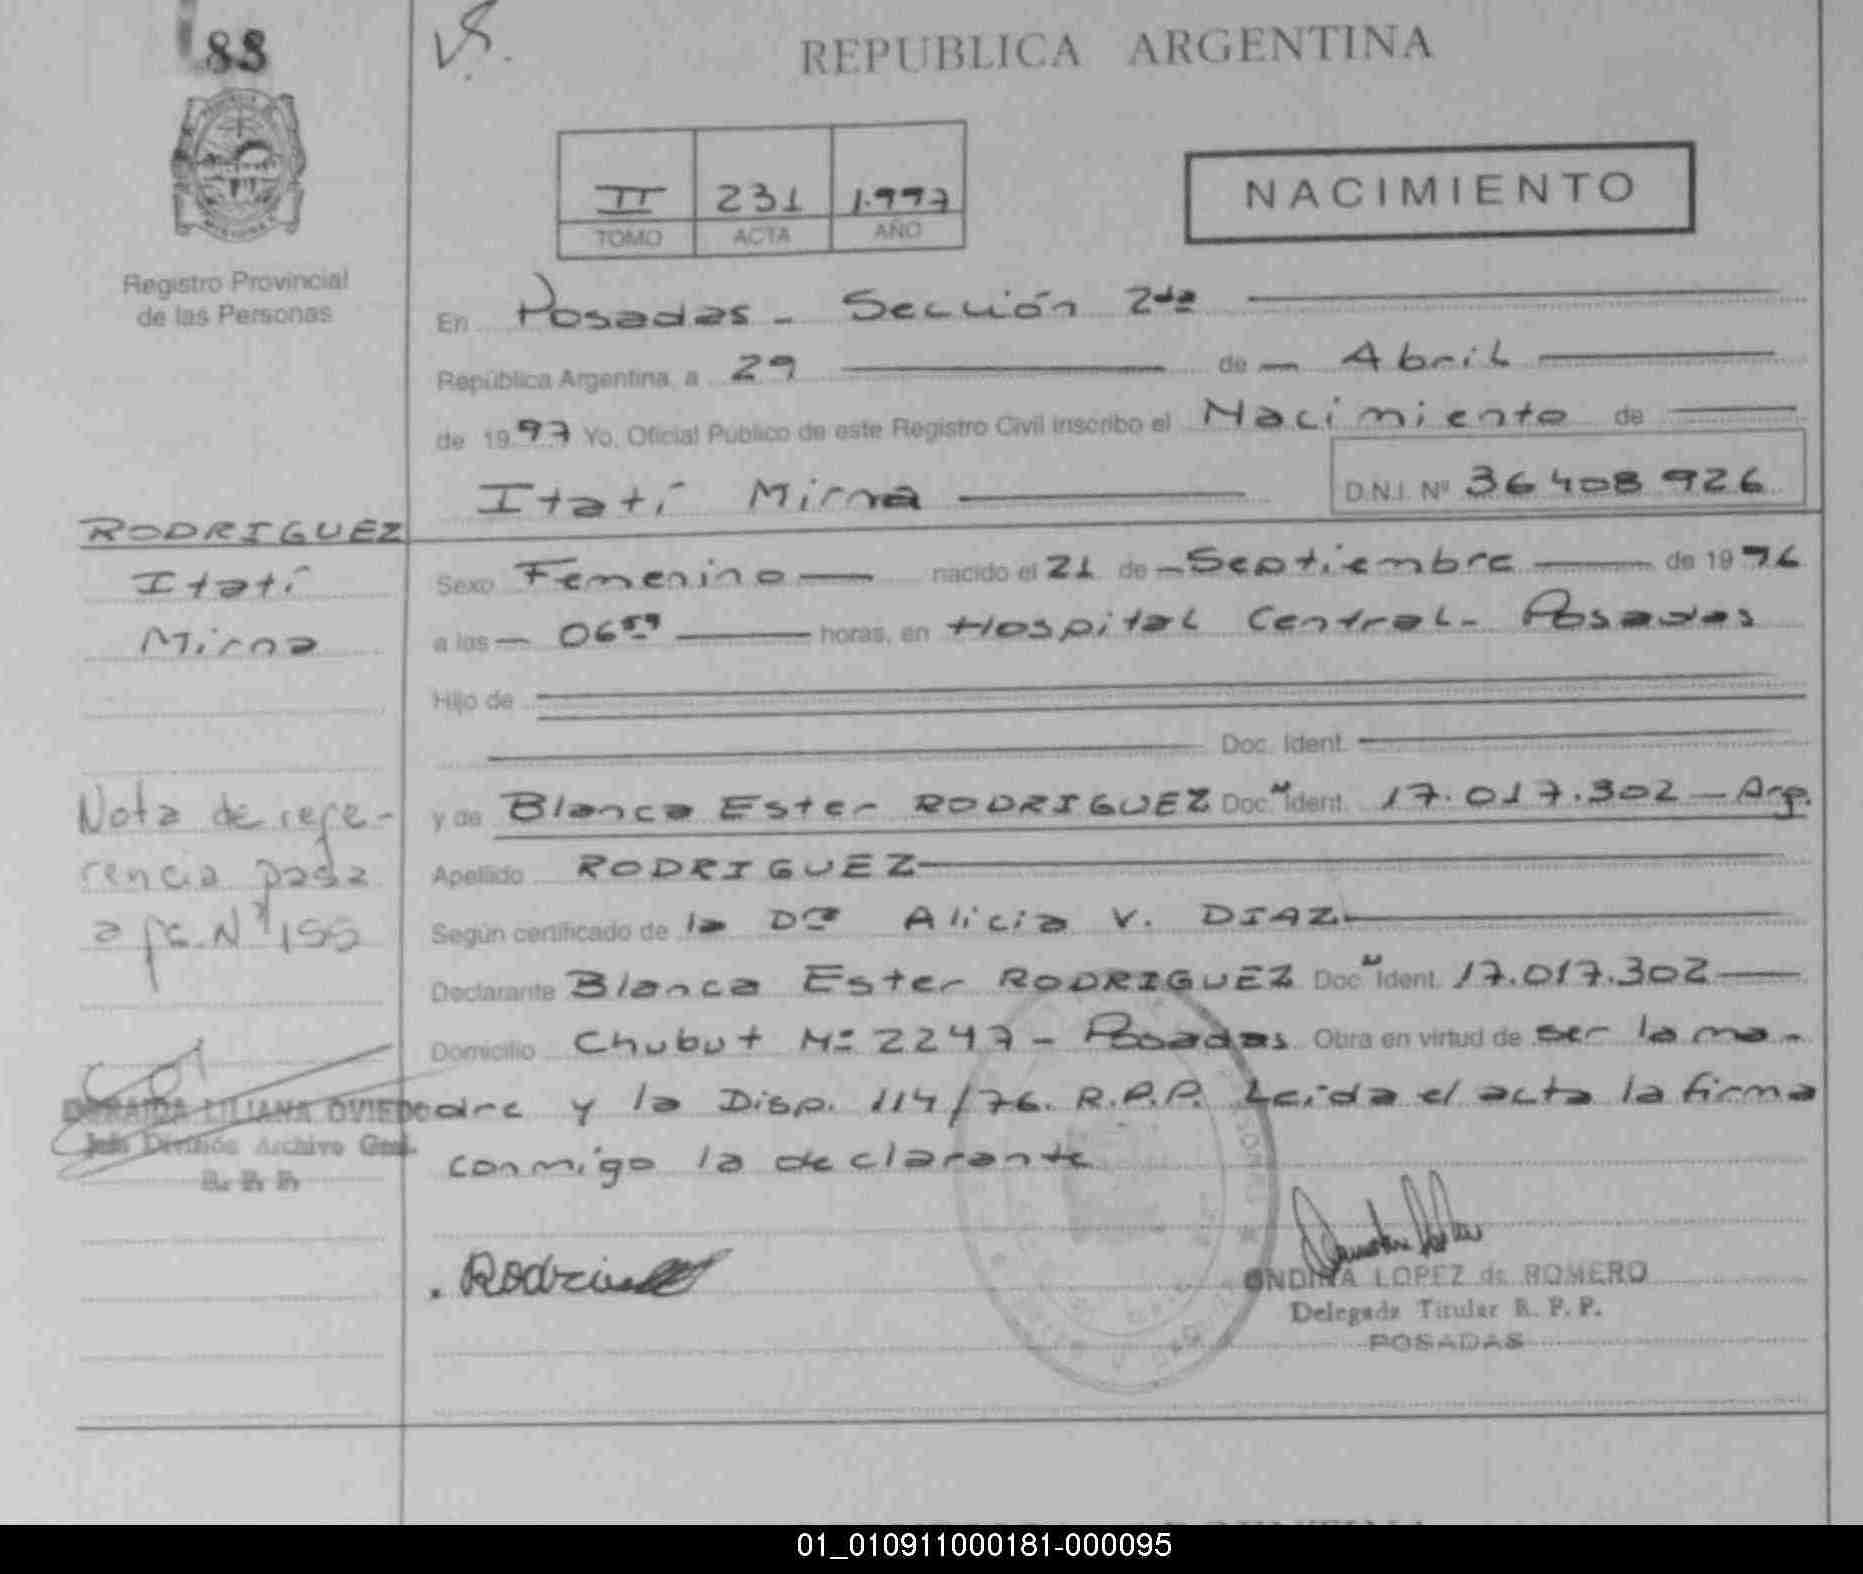 88
REPUBLICA ARGENTINA
II 231 1.997
TOMO ACTA AÑO
NACIMIENTO
Registro Provincial
de las Personas
En Posadas - Sección 2da
República Argentina, a 29 de Abril
de 1997 Yo, Oficial Público de este Registro Civil inscribo el Nacimiento de
Itatí Mirna D.N.I. Nº 36 408 926
RODRIGUEZ
Itatí
Mirna
Sexo Femenino nacido el 21 de Septiembre de 1996
a las 06 59 horas, en Hospital Central - Posadas
Hijo de
Doc. Ident.
y de Blanca Ester RODRIGUEZ Doc. N Ident. 17.017.302 - Arg.
Apellido RODRIGUEZ
Según certificado de la Dra Alicia V. DIAZ
Declarante Blanca Ester RODRIGUEZ Doc. N Ident. 17.017.302
Domicilio Chubut Nº 2247 - Posadas Obra en virtud de ser la ma-
dre y la Disp. 114/76. R.P.P. Leida el acta la firma
conmigo la declarante
Nota de refe-
rencia pasa
a fs. Nº 155
LILIANA OVIEDO
Jefe División Archivo Gral.
R. P. P.
ONDINA LOPEZ de ROMERO
Delegada Titular R. P. P.
POSADAS
01_010911000181-000095